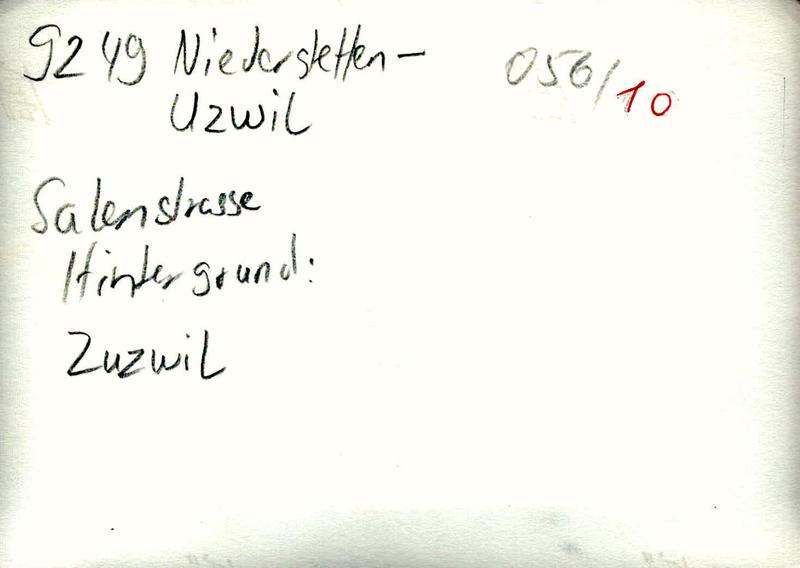 9249 Niederstetten-
Uzwil
056/10
Salenstrasse
Hintergrund:
Zuzwil